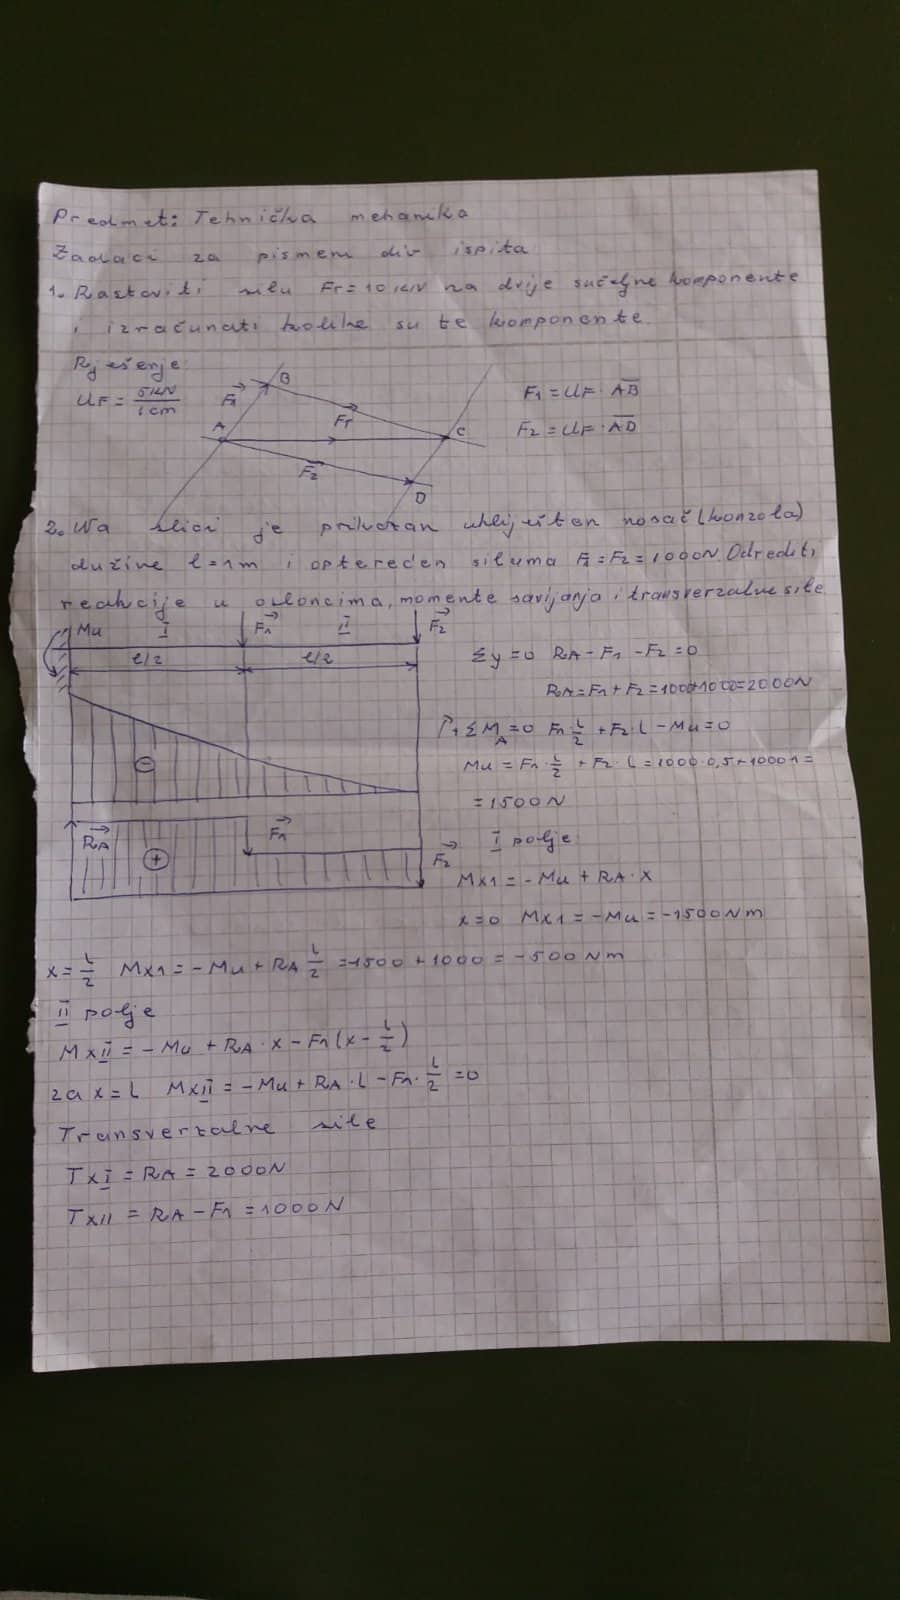 Predmet: Tehnička mehanika
Zadaci za pismeni dio ispita
1. Rastaviti silu Fr = 10 kN na dvije sučeljne komponente
i izračunati kolike su te komponente.
Rješenje:
UF = 5kN / 1cm
F1
B
Fr
A
C
F2
D
F1 = UF · AB
F2 = UF · AD
2. Na slici je prikazan uklješten nosač (konzola)
dužine l = 1m i opterećen silama F1 = F2 = 1000N. Odrediti
reakcije u osloncima, momente savijanja i transverzalne sile.
Mu I F1 II F2
l/2 l/2
Σy = 0 RA - F1 - F2 = 0
RA = F1 + F2 = 1000+1000 = 2000N
+ΣMA = 0 F1 · l/2 + F2 · l - Mu = 0
Mu = F1 · l/2 + F2 · l = 1000·0,5 + 1000·1 =
= 1500N
⊖
RA ⊕ F1 F2
I polje:
Mx1 = - Mu + RA · x
x = 0 Mx1 = - Mu = - 1500Nm
x = l/2 Mx1 = - Mu + RA l/2 = -1500 + 1000 = - 500 Nm
II polje
MxII = - Mu + RA · x - F1 (x - l/2)
za x = l MxII = - Mu + RA · l - F1 · l/2 = 0
Transverzalne sile
TxI = RA = 2000N
TxII = RA - F1 = 1000N